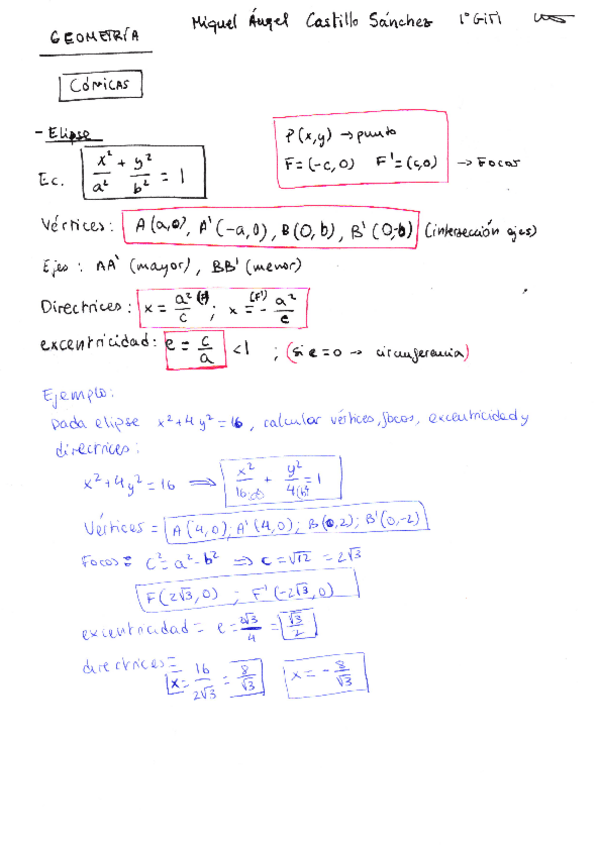 Miguel Ángel Castillo Sánchez 1º GITI
GEOMETRÍA
CÓNICAS
- Elipse
P(x,y) → punto
F=(-c,0) F'=(c,0) → Focos
Ec. x²/a² + y²/b² = 1
Vértices: A(a,0), A'(-a,0), B(0,b), B'(0,-b) (intersección ejes)
Ejes: AA' (mayor), BB' (menor)
Directrices: x = a²/c (F); x = - a²/c (F')
excentricidad: e = c/a < 1 ; (si e=0 → circunferencia)
Ejemplo:
Dada elipse x²+4y²=16, calcular vértices, focos, excentricidad y
directrices:
x²+4y²=16 ⟹ x²/16 (a²) + y²/4 (b²) = 1
Vértices = A(4,0); A'(4,0); B(0,2); B'(0,-2)
Focos = c²=a²-b² ⟹ c=√12 = 2√3
F(2√3,0) ; F'(-2√3,0)
excentricidad = e = 2√3/4 = √3/2
directrices =
x = 16/2√3 = 8/√3 x = - 8/√3